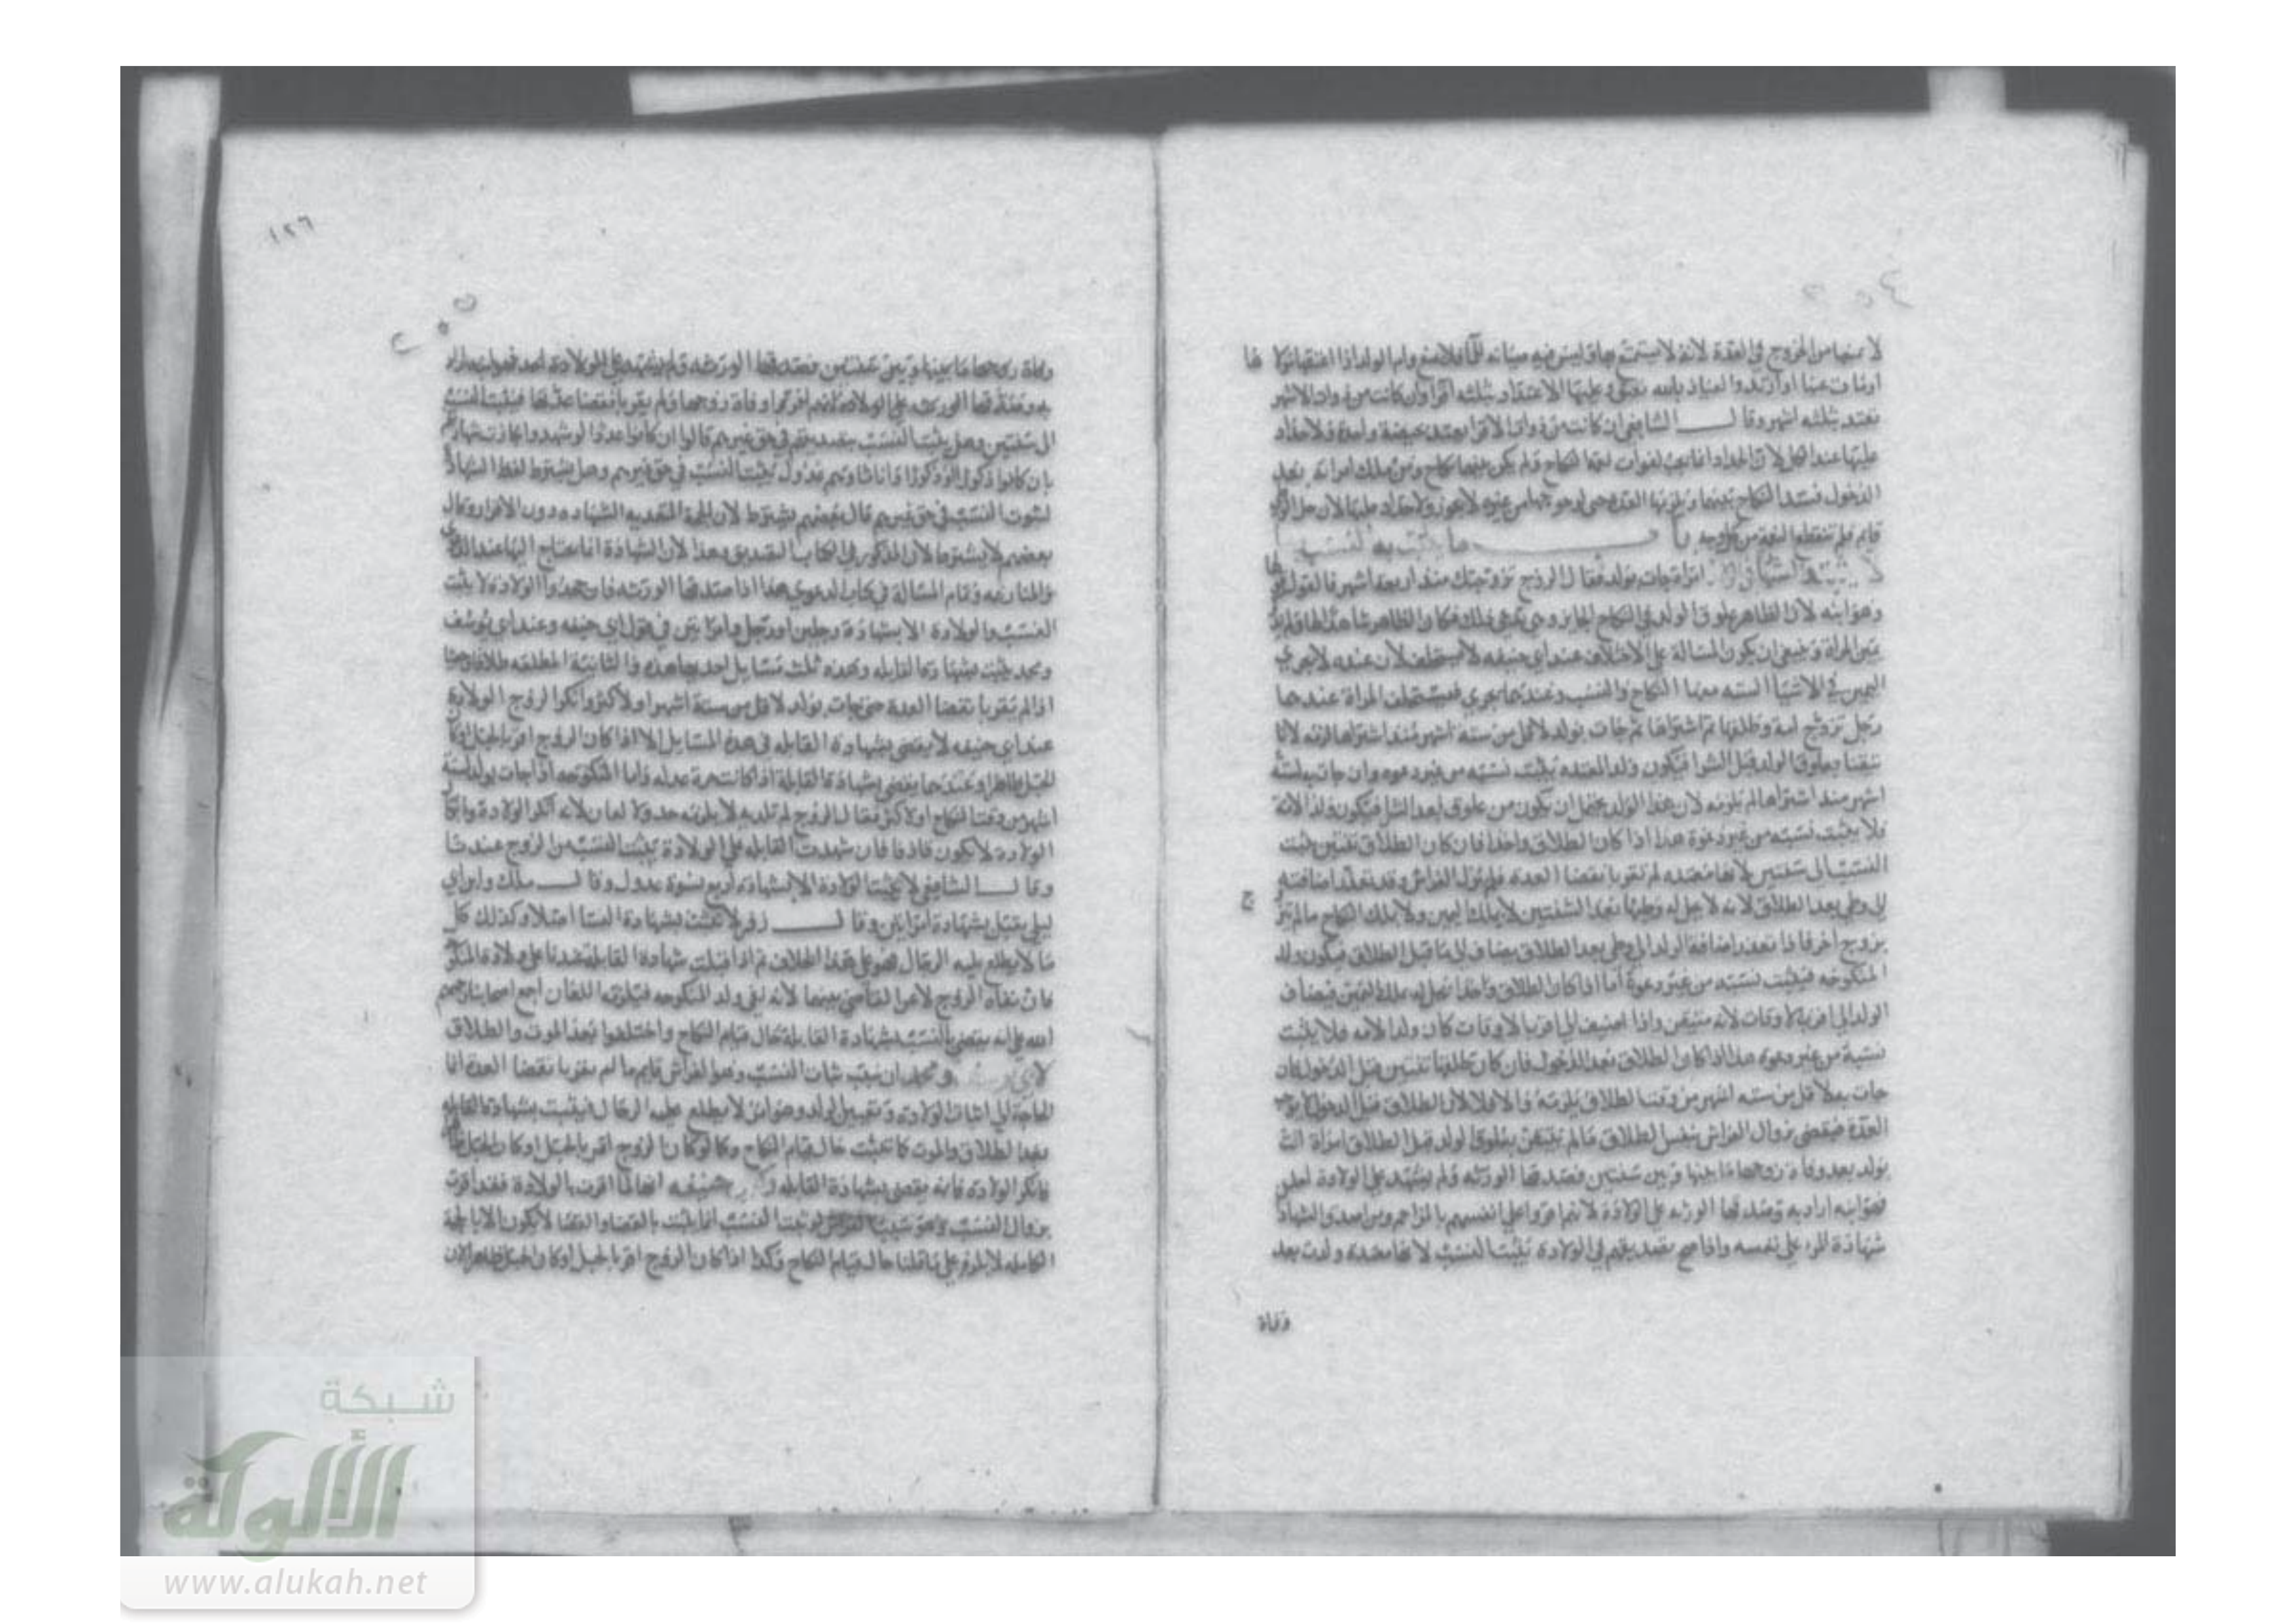 ٢٥٤
لا يمنعها من الخروج في العدة لانه لا يستمتع بها وليس فيه صيانه وام الولد اذا اعتقها مولاها
او مات عنها او ارتد والعياذ بالله تعالى وعليها الاعتداد بثلثه اقرا وان كانت من ذوات الاشهر
تعتد بثلثه اشهر وقال الشافعي ان كانت من ذوات الاقرا تعتد بحيضة واحدة ولا حداد
عليها عند الكل لان الحداد انما يجب لفوات نعمة النكاح ولم يكن بينهما نكاح ومن ملك امراته بعد
الدخول فسد النكاح بينهما ويلزمها العدة حتى لو زوجها من غيره لا يجوز ولا حداد عليها لان حل الوطي
قايم فلم تنقطع النعمة من كل وجه باب ما يثبت به النسب
امراة جات بولد فقال الزوج تزوجتك منذ اربعة اشهر فالقول قولها
وهو ابنه لان الظاهر علوق الولد في النكاح الجايز وهي تدعي ذلك فكان الظاهر شاهدا لها ولم يذكر
يمين المراة وينبغي ان يكون المسالة على الاختلاف عند ابي حنيفه لا تستحلف لان عنده لا يجري
اليمين في الاشيا الستة منها النكاح والنسب وعندهما يجري فتستحلف المراة عندهما
رجل تزوج امة وطلقها ثم اشتراها ثم جات بولد لاقل من ستة اشهر منذ اشتراها لزمه لانا
تيقنا بعلوق الولد قبل الشرا فيكون ولد المعتده يثبت نسبه من غير دعوه وان جات به لستة
اشهر منذ اشتراها لم يلزمه لان هذا الولد يحتمل ان يكون من علوق بعد الشرا فيكون ولد الامة
فلا يثبت نسبه من غير دعوة هذا اذا كان الطلاق واحدا فان كان الطلاق ثنتين يثبت
النسب الى سنتين لانها معتده لم تقر بانقضا العدة فلم يزل الفراش وقد تعذر اضافته
الى وطي بعد الطلاق لانه لا يحل له وطيها بعد الثنتين لا بملك اليمين ولا بملك النكاح ما لم تتزوج
بزوج اخر فاذا تعذر اضافة الولد الى وطي بعد الطلاق يضاف الى ما قبل الطلاق فيكون ولد
المنكوحه فيثبت نسبه من غير دعوة اما اذا كان الطلاق واحدا تحل له بملك اليمين فيضاف
الولد الى اقرب الاوقات لانه متيقن واذا اضيف الى اقرب الاوقات كان ولد الامه فلا يثبت
نسبه من غير دعوه هذا اذا كان الطلاق بعد الدخول فان كان طلقها ثنتين قبل الدخول فان
جات به لاقل من سته اشهر من وقت الطلاق يلزمه والا فلا لان الطلاق قبل الدخول لا يوجب
العدة فيقضى بزوال الفراش بنفس الطلاق ما لم يتيقن بعلوق الولد قبل الطلاق امراة اتت
بولد بعد وفاة زوجها ما بينها وبين سنتين فصدقها الورثه ولم يشهد على الولادة احد
فهو ابنه اراد به وصدقها الورثه على الولادة لانهم اقروا على انفسهم بالمزاحم
شهادة المرء على نفسه واذا صح تصديقهم في الولادة يثبت النسب لانها معتده ولدت بعد
وفاة
١٢٦
٢٥٥
وفاة زوجها ما بينها وبين سنتين فصدقها الورثه ولم يشهد على الولادة احد
على الولادة وفاة زوجها ولم يقر بانقضا عدتها فيثبت النسب
الى سنتين وهل يثبت النسب بتصديقهم في حق غيرهم قالوا ان كانوا عدولا لو شهدوا جازت شهادتهم
بان كانوا ذكورا او ذكورا واناثا وهم عدول يثبت النسب في حق غيرهم وهل يشترط لفظ الشهادة
لثبوت النسب في حق غيرهم قال بعضهم يشترط لان الحجة المتعديه الشهاده دون الاقرار وقال
بعضهم لا يشترط لان المذكور في الكتاب التصديق وهذا لان الشهادة انما يحتاج اليها عند الدعوى
والمنازعه وتمام المسالة في كتاب الدعوى هذا اذا صدقها الورثه فان جحدوا الولادة لا يثبت
النسب والولادة الا بشهادة رجلين او رجل وامراتين في قول ابي حنيفه وعند ابي يوسف
ومحمد يثبت بشهادة القابله وهذه ثلث مسايل احديها هذه والثانية المطلقه طلاقا رجعيا
اذا لم تقر بانقضا العدة حتى جات بولد لاقل من ستة اشهر او لاكثر وانكر الزوج الولادة
عند ابي حنيفه لا يقضى بشهادة القابله في هذه المسايل الا اذا كان الزوج اقر بالحبل او كان
الحبل ظاهرا وعندهما يقضى بشهادة القابلة اذا كانت حرة عدله واما المنكوحه اذا جات بولد لستة
اشهر من وقت النكاح او لاكثر فقال الزوج لم تلديه لا يلزمه حد ولا لعان لانه انكر الولادة وانكار
الولادة لا يكون قاذفا فان شهدت القابله على الولادة يثبت النسب من الزوج عندنا
وقال الشافعي لا يثبت الولادة الا بشهادة اربع نسوة عدول وقال ملك وابن ابي
ليلى يقبل بشهادة امراتين وقال زفر لا يثبت بشهادة النسا اصلا وكذلك كل
ما لا يطلع عليه الرجال فهو على هذا الخلاف ثم اذا قبلت شهادة القابلة عندنا على ولادة المنكوحة
فان نفاه الزوج لاعن القاضي بينهما لانه نفى ولد المنكوحه فيلزمه اللعان اجمع اصحابنا رحمهم
الله على انه يقضى بالنسب بشهادة القابلة حال قيام النكاح واختلفوا بعد الموت والطلاق
لابي يوسف ومحمد ان سبب ثبات النسب وهو الفراش قايم ما لم تقر بانقضا العدة انما
الحاجة الى اثبات الولادة وتعيين الولد وهو امر لا يطلع عليه الرجال فيثبت بشهادة القابله
بعد الطلاق والموت كما يثبت حال قيام النكاح وكما لو كان الزوج اقر بالحبل او كان الحبل ظاهرا
فانكر الولادة فانه يقضى بشهادة القابله ولابي حنيفه انها لما اقرت بالولادة فقد اقرت
بزوال النسب لو ثبت النسب انما يثبت بالقضا والقضا لا يكون الا بالحجة
الكاملة لا يلزم على ما قلنا حال قيام النكاح وكذا اذا كان الزوج اقر بالحبل او كان الحبل ظاهرا لان
شبكة
الألوكة
www.alukah.net